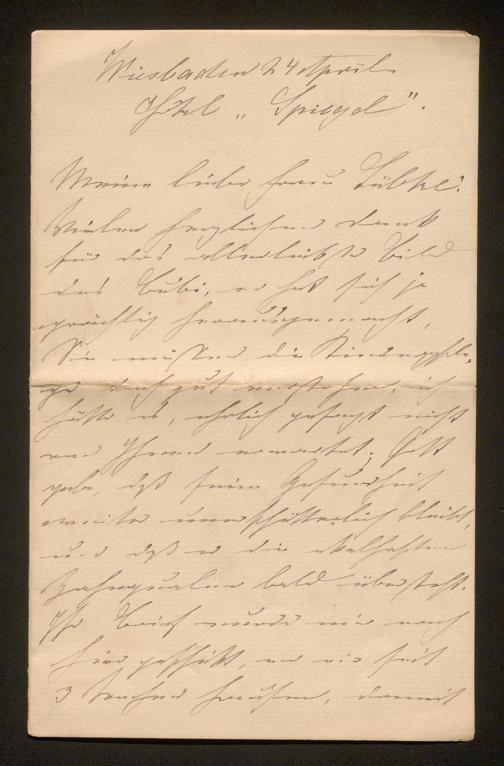 Wiesbaden 24 April
Hotel „Spiegel".
Meine liebe Frau Lübke!
Vielen herzlichen Dank
für das allerliebste Bild
des Bubi, er hat sich ja
prächtig herausgemacht,
Sie müssen die Kinderpfle-
ge sehr gut verstehen, ich
hätte es, ehrlich gesagt nicht
von Ihnen erwartet. Gott
gebe daß seine Gesundheit
weiter unerschütterlich bleibt,
und daß er die ekelhaften
Zahnqualen bald übersteht.
Ihr Brief wurde mir nach
hier geschickt, wo wir seit
3 Wochen hausen, damit